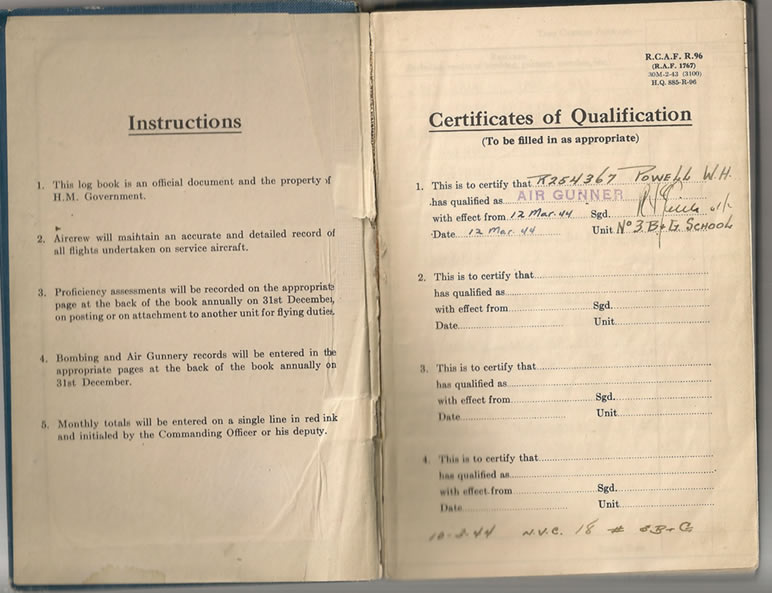 Instructions
1. This log book is an official document and the property of
H.M. Government.
2. Aircrew will maintain an accurate and detailed record of
all flights undertaken on service aircraft.
3. Proficiency assessments will be recorded on the appropriate
page at the back of the book annually on 31st December,
on posting or on attachment to another unit for flying duties.
4. Bombing and Air Gunnery records will be entered in the
appropriate pages at the back of the book annually on
31st December.
5. Monthly totals will be entered on a single line in red ink
and initialed by the Commanding Officer or his deputy.
R.C.A.F. R.96
(R.A.F. 1767)
30M-2-43 (3100)
H.Q. 885-R-96
Certificates of Qualification
(To be filled in as appropriate)
1. This is to certify that R254367 Powell W.H.
has qualified as AIR GUNNER
with effect from 12 Mar. 44 Sgd.
Date 12 Mar. 44 Unit No 3 B & G School
2. This is to certify that
has qualified as
with effect from Sgd.
Date Unit
3. This is to certify that
has qualified as
with effect from Sgd.
Date Unit
4. This is to certify that
has qualified as
with effect from Sgd.
Date Unit
10-3-44 N.V.C. 18 # 3 B & G